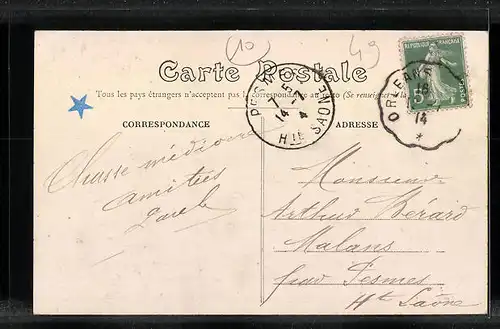 10
49
Carte Postale
Tous les pays étrangers n'acceptent pas la correspondance au recto (Se renseigner à la
CORRESPONDANCE
ADRESSE
REPUBLIQUE FRANÇAISE
5
POSTES
ORLEANS
14
*
7 5
14-7
4
HTE SAONE
Chasse médiocre
amitiés
Monsieur
Arthur Bérard
Malans
par Pesmes
Hte Saône